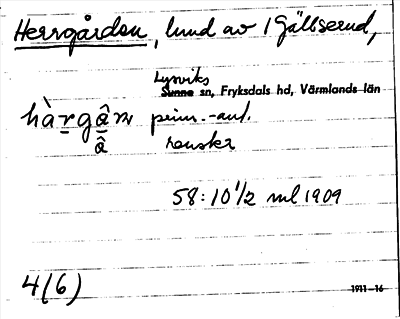 Herrgården, lund av 1 Gällserud,
Lysviks
Sunne sn, Fryksdals hd, Värmlands län
hàrgâṇ prim.-ant.
â
58:10 1/2 ml 1909
4(6)
1911-16